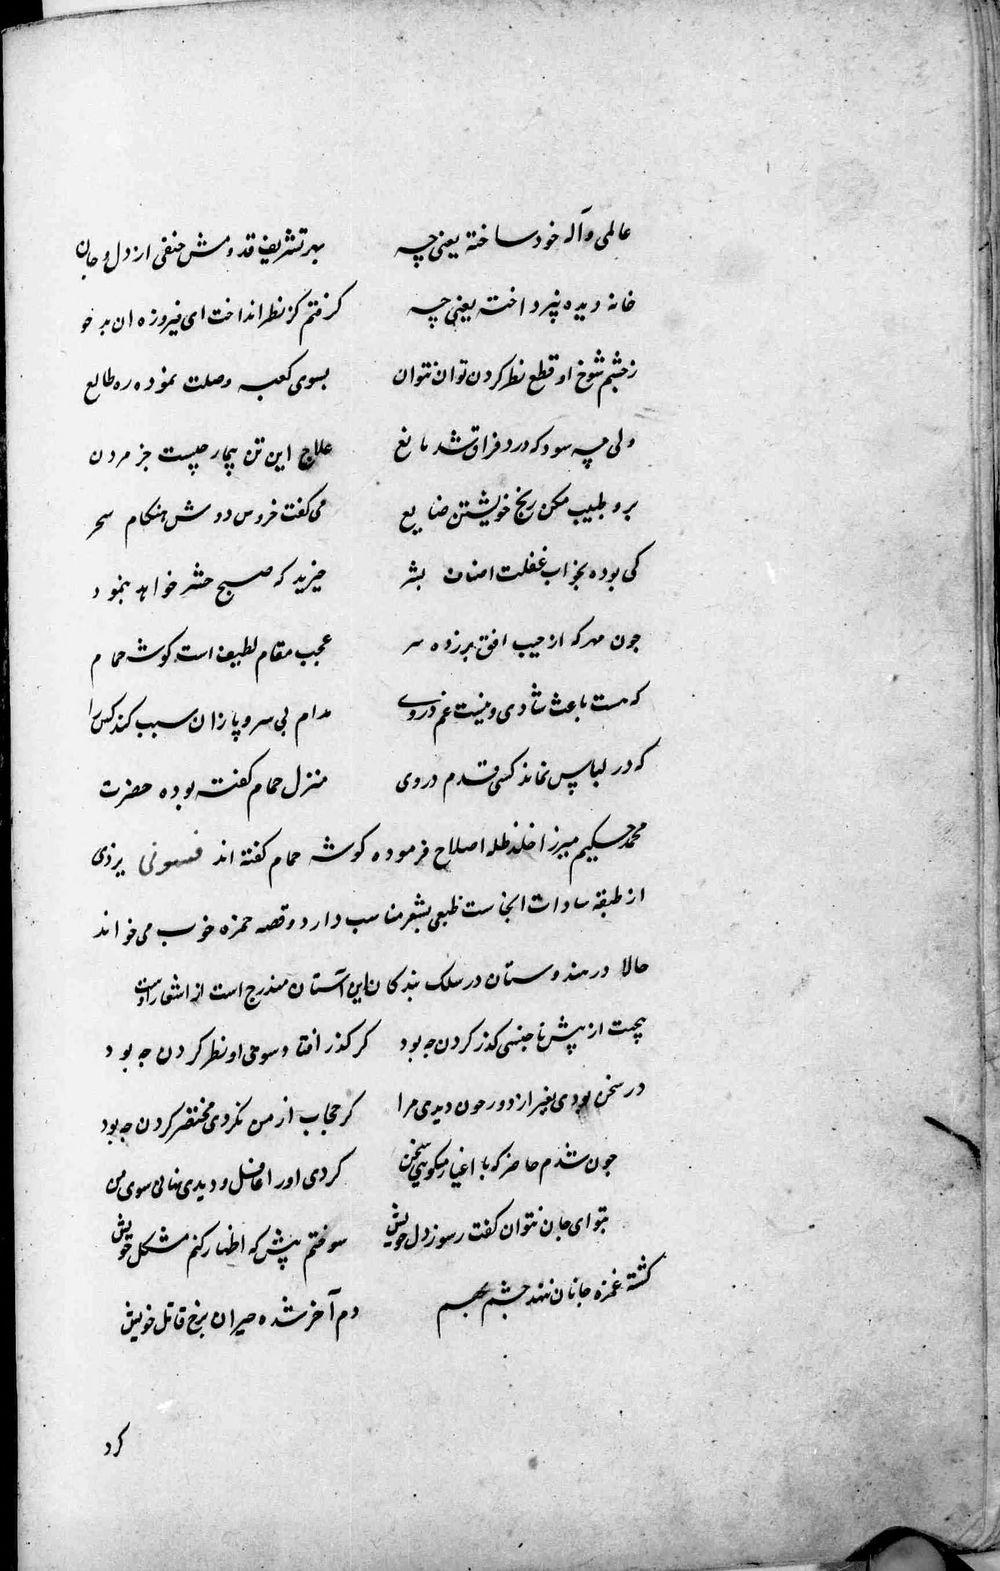 عالمی واله خود ساخته یعنی چه بهر تشریف قدومش حنفی از دل و جان
خانه دیده بپرداخته یعنی چه گرفتم کز نظر انداخت ای فیروزه ان بدخو
زچشم شوخ او قطع نظر کردن توان نتوان بسوی کعبه وصلت نموده ره طالع
ولی چه سود که درد فراق شد مانع علاج این تن بیمار چیست جز مردن
برو طبیب مکن رنج خویشتن ضایع می گفت خروس دوش هنکام سحر
کی بوده بخواب غفلت اصناف بشر خیزید که صبح حشر خواهد بنمود
چون مهر که از جیب افق برزده سر عجب مقام لطیف است کوشه حمام
که هست باعث شادی و نیست غم دروی مدام بی سر و پا زان سبب کند کس را
که در لباس نماند کسی قدم دروی منزل حمام گفته بوده حضرت
محمد حکیم میرزا خلد ظله اصلاح فرموده کوشه حمام گفته اند فسونی یزدی
از طبقه سادات انجاست طبعی بشعر مناسب دارد و قصه حمزه خوب می خواند
حالا در هندوستان در سلک بندکان این آستان مندرج است از اشعار اوست
بیجهت از پیش ناجنسی کذر کردن چه بود کر کذر افتاد سوی او نظر کردن چه بود
در سخن بودی بغیر از دور چون دیدی مرا کر حجاب از من نکردی مختصر کردن چه بود
چون شدم حاضر که با اغیار میکویی سخن کردی او را غافل و دیدی نهانی سوی من
بتو ای جان نتوان گفت رسوز دل خویش سوختم پیش که اظهار کنم مشکل خویش
کشته غمزه جانان ننهد چشم بهم دم آخر شده حیران برخ قاتل خویش
کرد